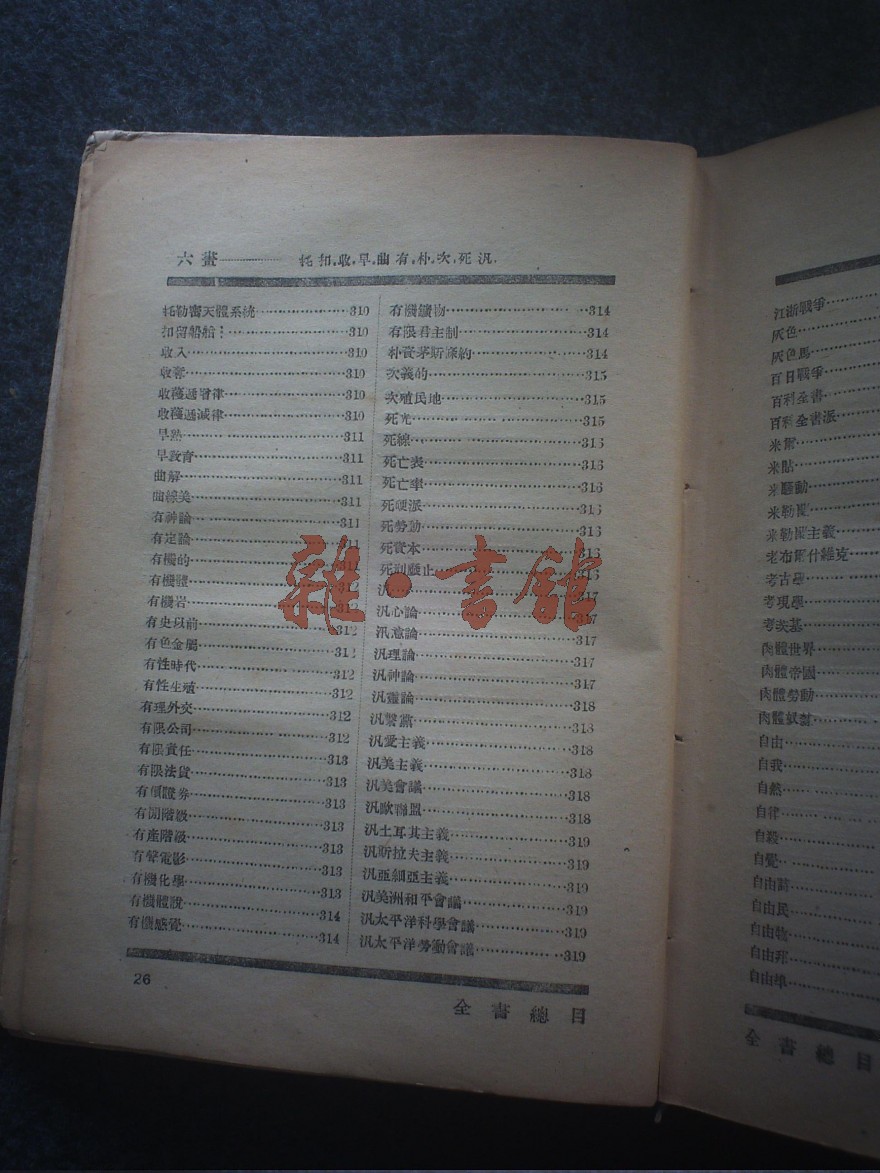 六畫………… 托.扣.收.早.曲.有.朴.次.死.汎.
托勒密天體系統…………310
扣留船舶…………310
收入…………310
收奪…………310
收穫遞增律…………310
收穫遞減律…………310
早熟…………311
早教育…………311
曲解…………311
曲線美…………311
有神論…………311
有定論…………311
有機的…………311
有機體…………
有機岩…………312
有史以前…………312
有色金屬…………312
有性時代…………312
有性生殖…………312
有理外交…………312
有限公司…………312
有限責任…………313
有限法貨…………313
有價證券…………313
有閒階級…………313
有產階級…………313
有聲電影…………313
有機化學…………313
有機體說…………314
有機感覺…………314
有機鑛物…………314
有限君主制…………314
朴資茅斯條約…………314
次義的…………315
次殖民地…………315
死光…………315
死線…………316
死亡表…………316
死亡率…………316
死硬派…………316
死勞動…………316
死資本…………316
死刑廢止…………316
汎…………317
汎心論…………317
汎意論…………317
汎理論…………317
汎神論…………317
汎靈論…………318
汎繫黨…………318
汎愛主義…………318
汎美主義…………318
汎美會議…………318
汎歐聯盟…………318
汎土耳其主義…………319
汎斯拉夫主義…………319
汎亞細亞主義…………319
汎美洲和平會議…………319
汎太平洋科學會議…………319
汎太平洋勞働會議…………319
26
全書總目
雜·書館
江浙戰爭…………
灰色…………
灰色馬…………
百日戰爭…………
百科全書…………
百科全書派…………
米爾…………
米貼…………
米騷動…………
米勒蘭…………
米勒蘭主義…………
老布爾什維克
考古學…………
考現學…………
考茨基…………
肉體世界…………
肉體帝國…………
肉體勞動…………
肉體奴隸…………
自由…………
自我…………
自然…………
自律…………
自殺…………
自覺…………
自由詩…………
自由民…………
自由物…………
自由邦…………
自由埠…………
全書總目